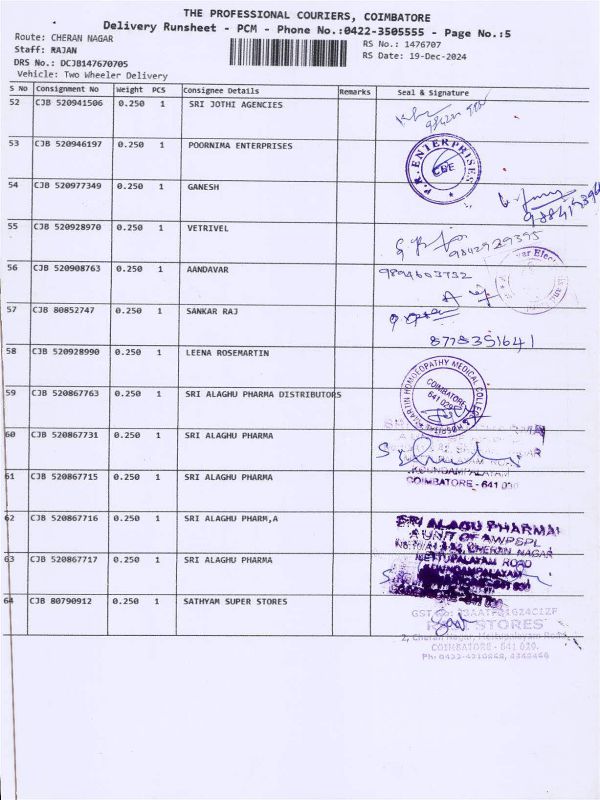 THE PROFESSIONAL COURIERS, COIMBATORE
Delivery Runsheet - PCM - Phone No.:0422-3505555 - Page No.:5
Route: CHERAN NAGAR
Staff: RAJAN
DRS No.: DCJB147670705
Vehicle: Two Wheeler Delivery
RS No.: 1476707
RS Date: 19-Dec-2024
S No Consignment No Weight PCS Consignee Details Remarks Seal & Signature
52 CJB 520941506 0.250 1 SRI JOTHI AGENCIES
53 CJB 520946197 0.250 1 POORNIMA ENTERPRISES
P.R. ENTERPRISES
CBE
54 CJB 520977349 0.250 1 GANESH
55 CJB 520928970 0.250 1 VETRIVEL
9842929395
56 CJB 520908763 0.250 1 AANDAVAR
9894603732
57 CJB 80852747 0.250 1 SANKAR RAJ
8778351641
58 CJB 520928990 0.250 1 LEENA ROSEMARTIN
MARTIN HOMOEOPATHY MEDICAL COLLEGE & HOSPITAL
COIMBATORE
641 029
59 CJB 520867763 0.250 1 SRI ALAGHU PHARMA DISTRIBUTORS
60 CJB 520867731 0.250 1 SRI ALAGHU PHARMA
KOUNDAMPALAYAM
COIMBATORE - 641 030
61 CJB 520867715 0.250 1 SRI ALAGHU PHARMA
62 CJB 520867716 0.250 1 SRI ALAGHU PHARM,A
SRI ALAGU PHARMA
A UNIT OF AWPSPL
CHERAN NAGAR
METTUPALAYAM ROAD
KOUNDAMPALAYAM
63 CJB 520867717 0.250 1 SRI ALAGHU PHARMA
64 CJB 80790912 0.250 1 SATHYAM SUPER STORES
STORES
2, Cheran Nagar, Mettupalayam Road,
COIMBATORE - 641 029.